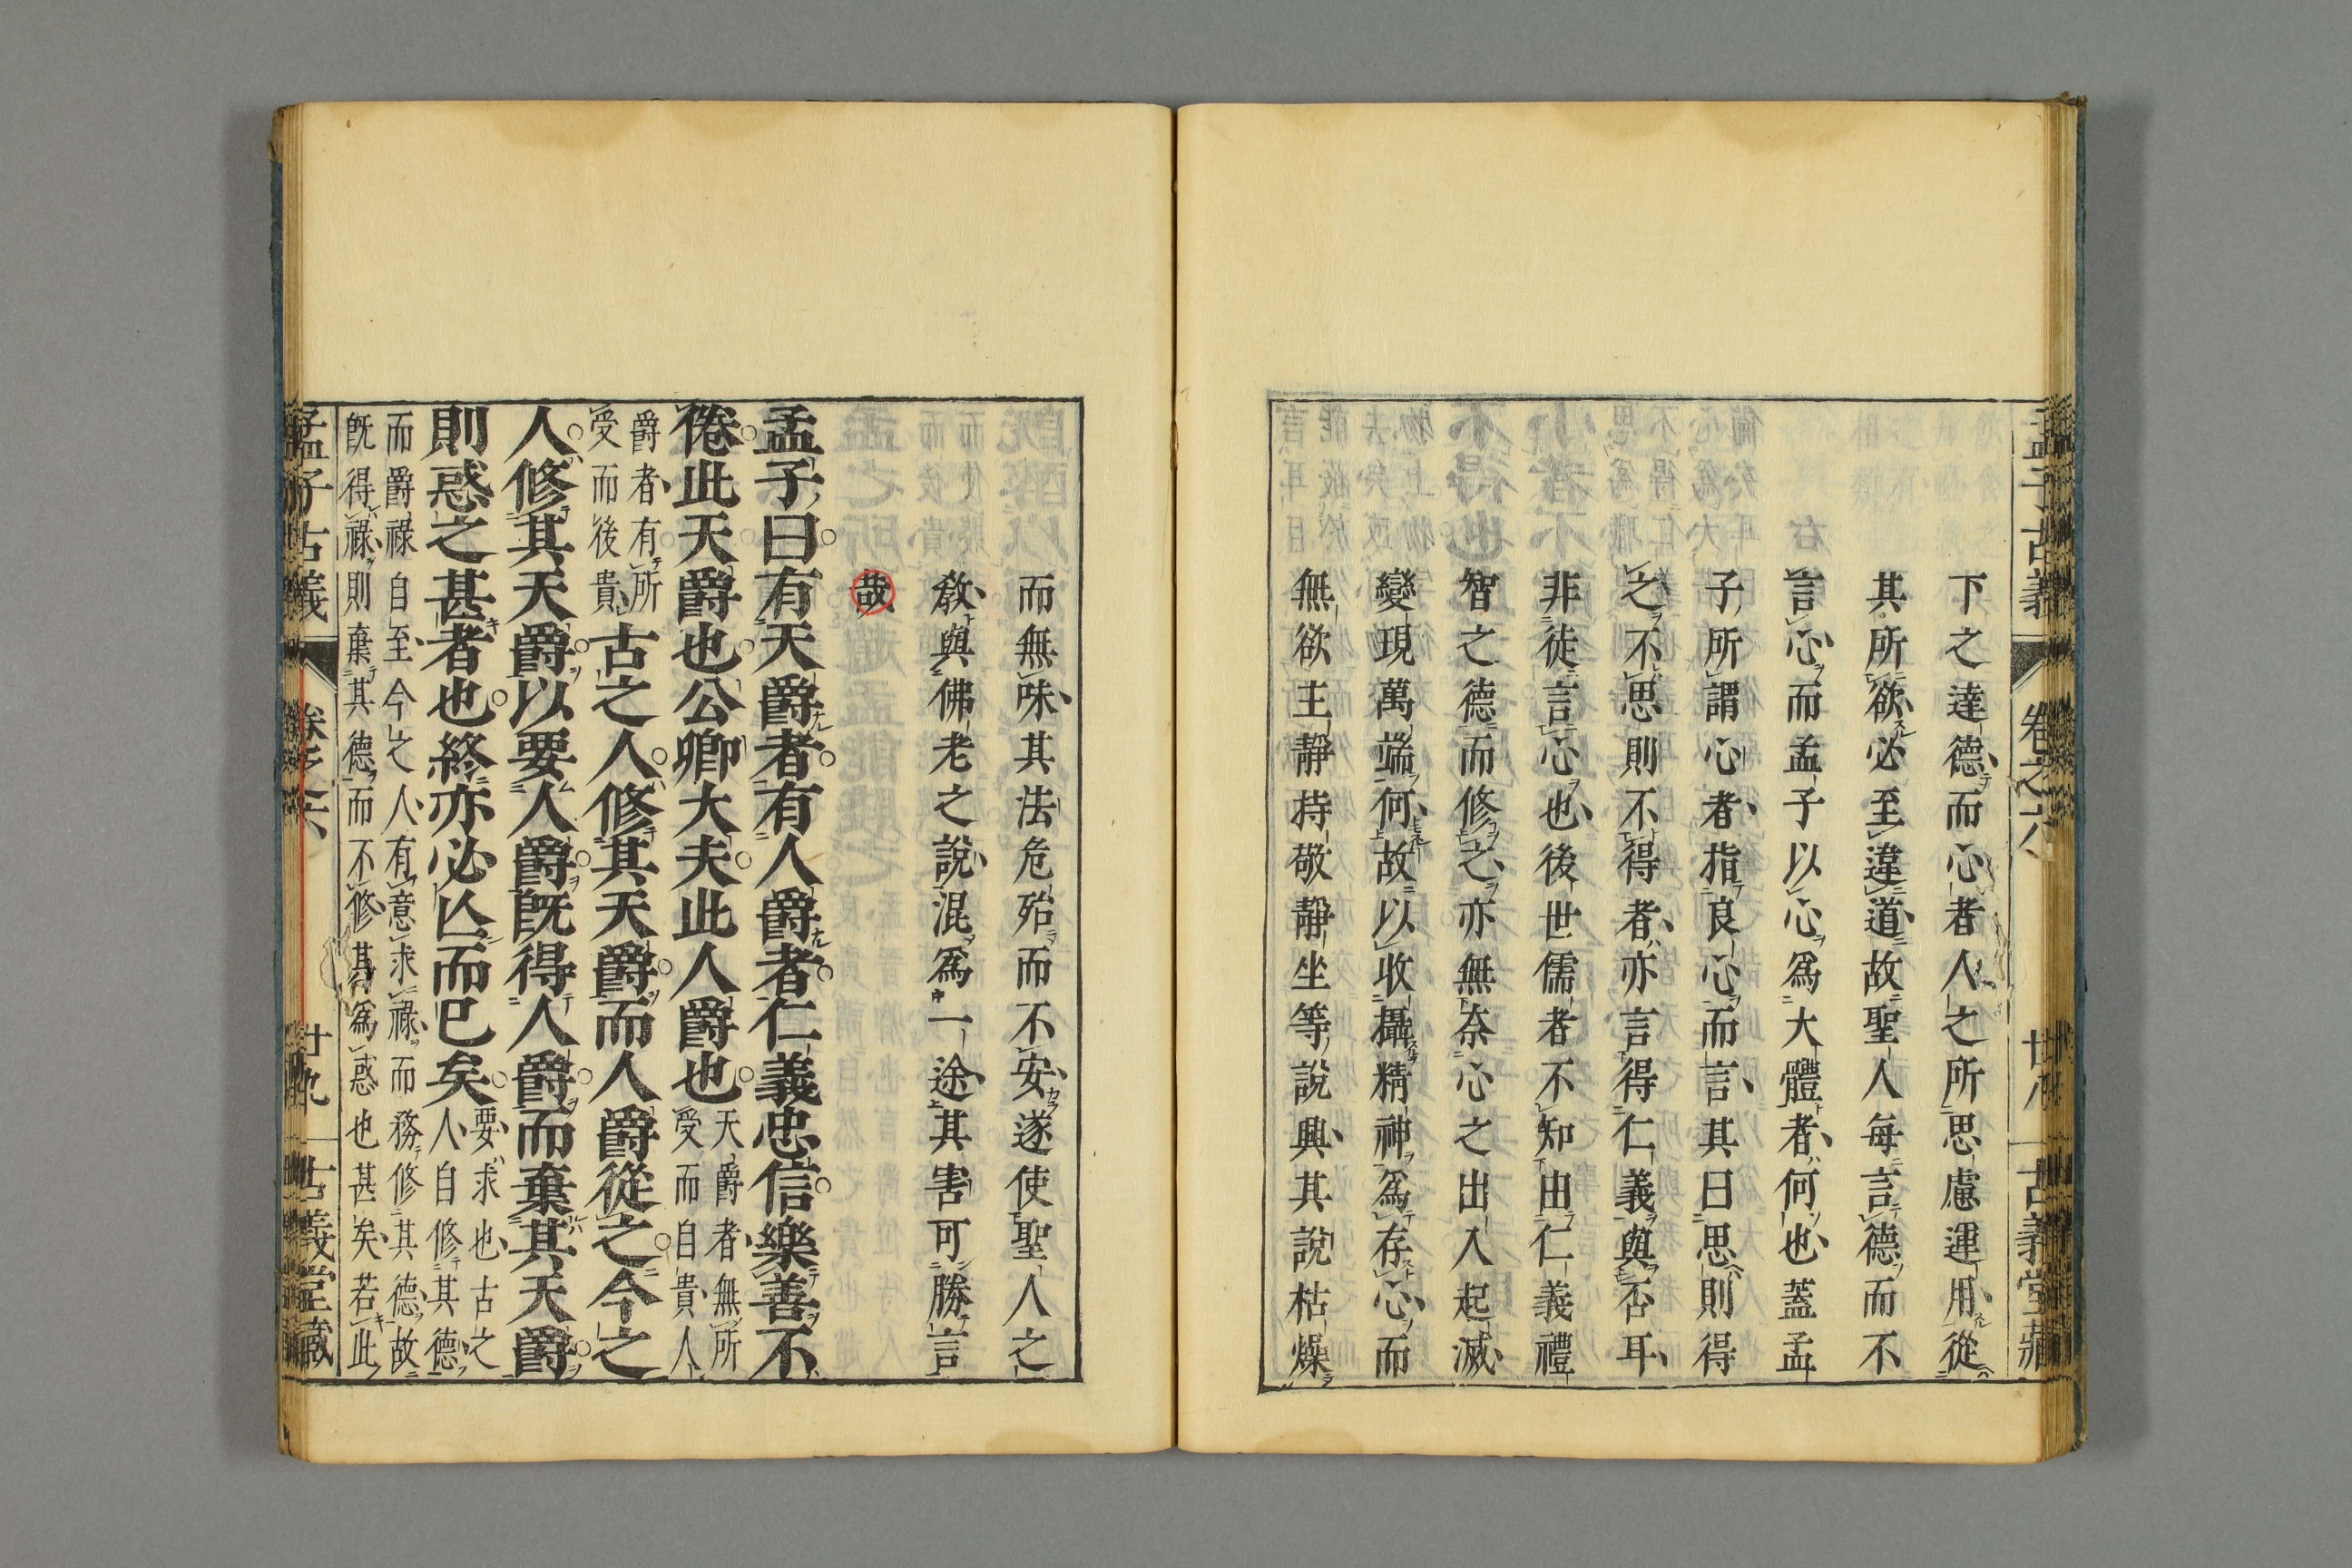 孟子古義 卷之六 古義堂藏
下之達德而心者人之所思慮運用從
其所欲必至違道故聖人每言德而不
言心而孟子以心爲大體者何也蓋孟
子所謂心者指良心而言其曰思則得
之不思則不得者亦言得仁義與否耳
非徒言心也後世儒者不知由仁義禮
智之德而修之亦無奈心之出入起滅
變現萬端何故以收攝精神爲存心而
無欲主靜持敬靜坐等說興其說枯燥
而無味其法危殆而不安遂使聖人之
教與佛老之說混爲一途其害可勝言
哉
孟子曰有天爵者有人爵者仁義忠信樂善不
倦此天爵也公卿大夫此人爵也
天爵者無所
受而自貴人
爵者有所
受而後貴
古之人修其天爵而人爵從之今之
人修其天爵以要人爵既得人爵而棄其天爵
則惑之甚者也終亦必亾而已矣
要求也古之
人自修其德
而爵祿自至今之人有意求祿而務修其德故
既得祿則棄其德而不修其爲惑也甚矣若此
孟子古義 卷之六 廿九 古義堂藏